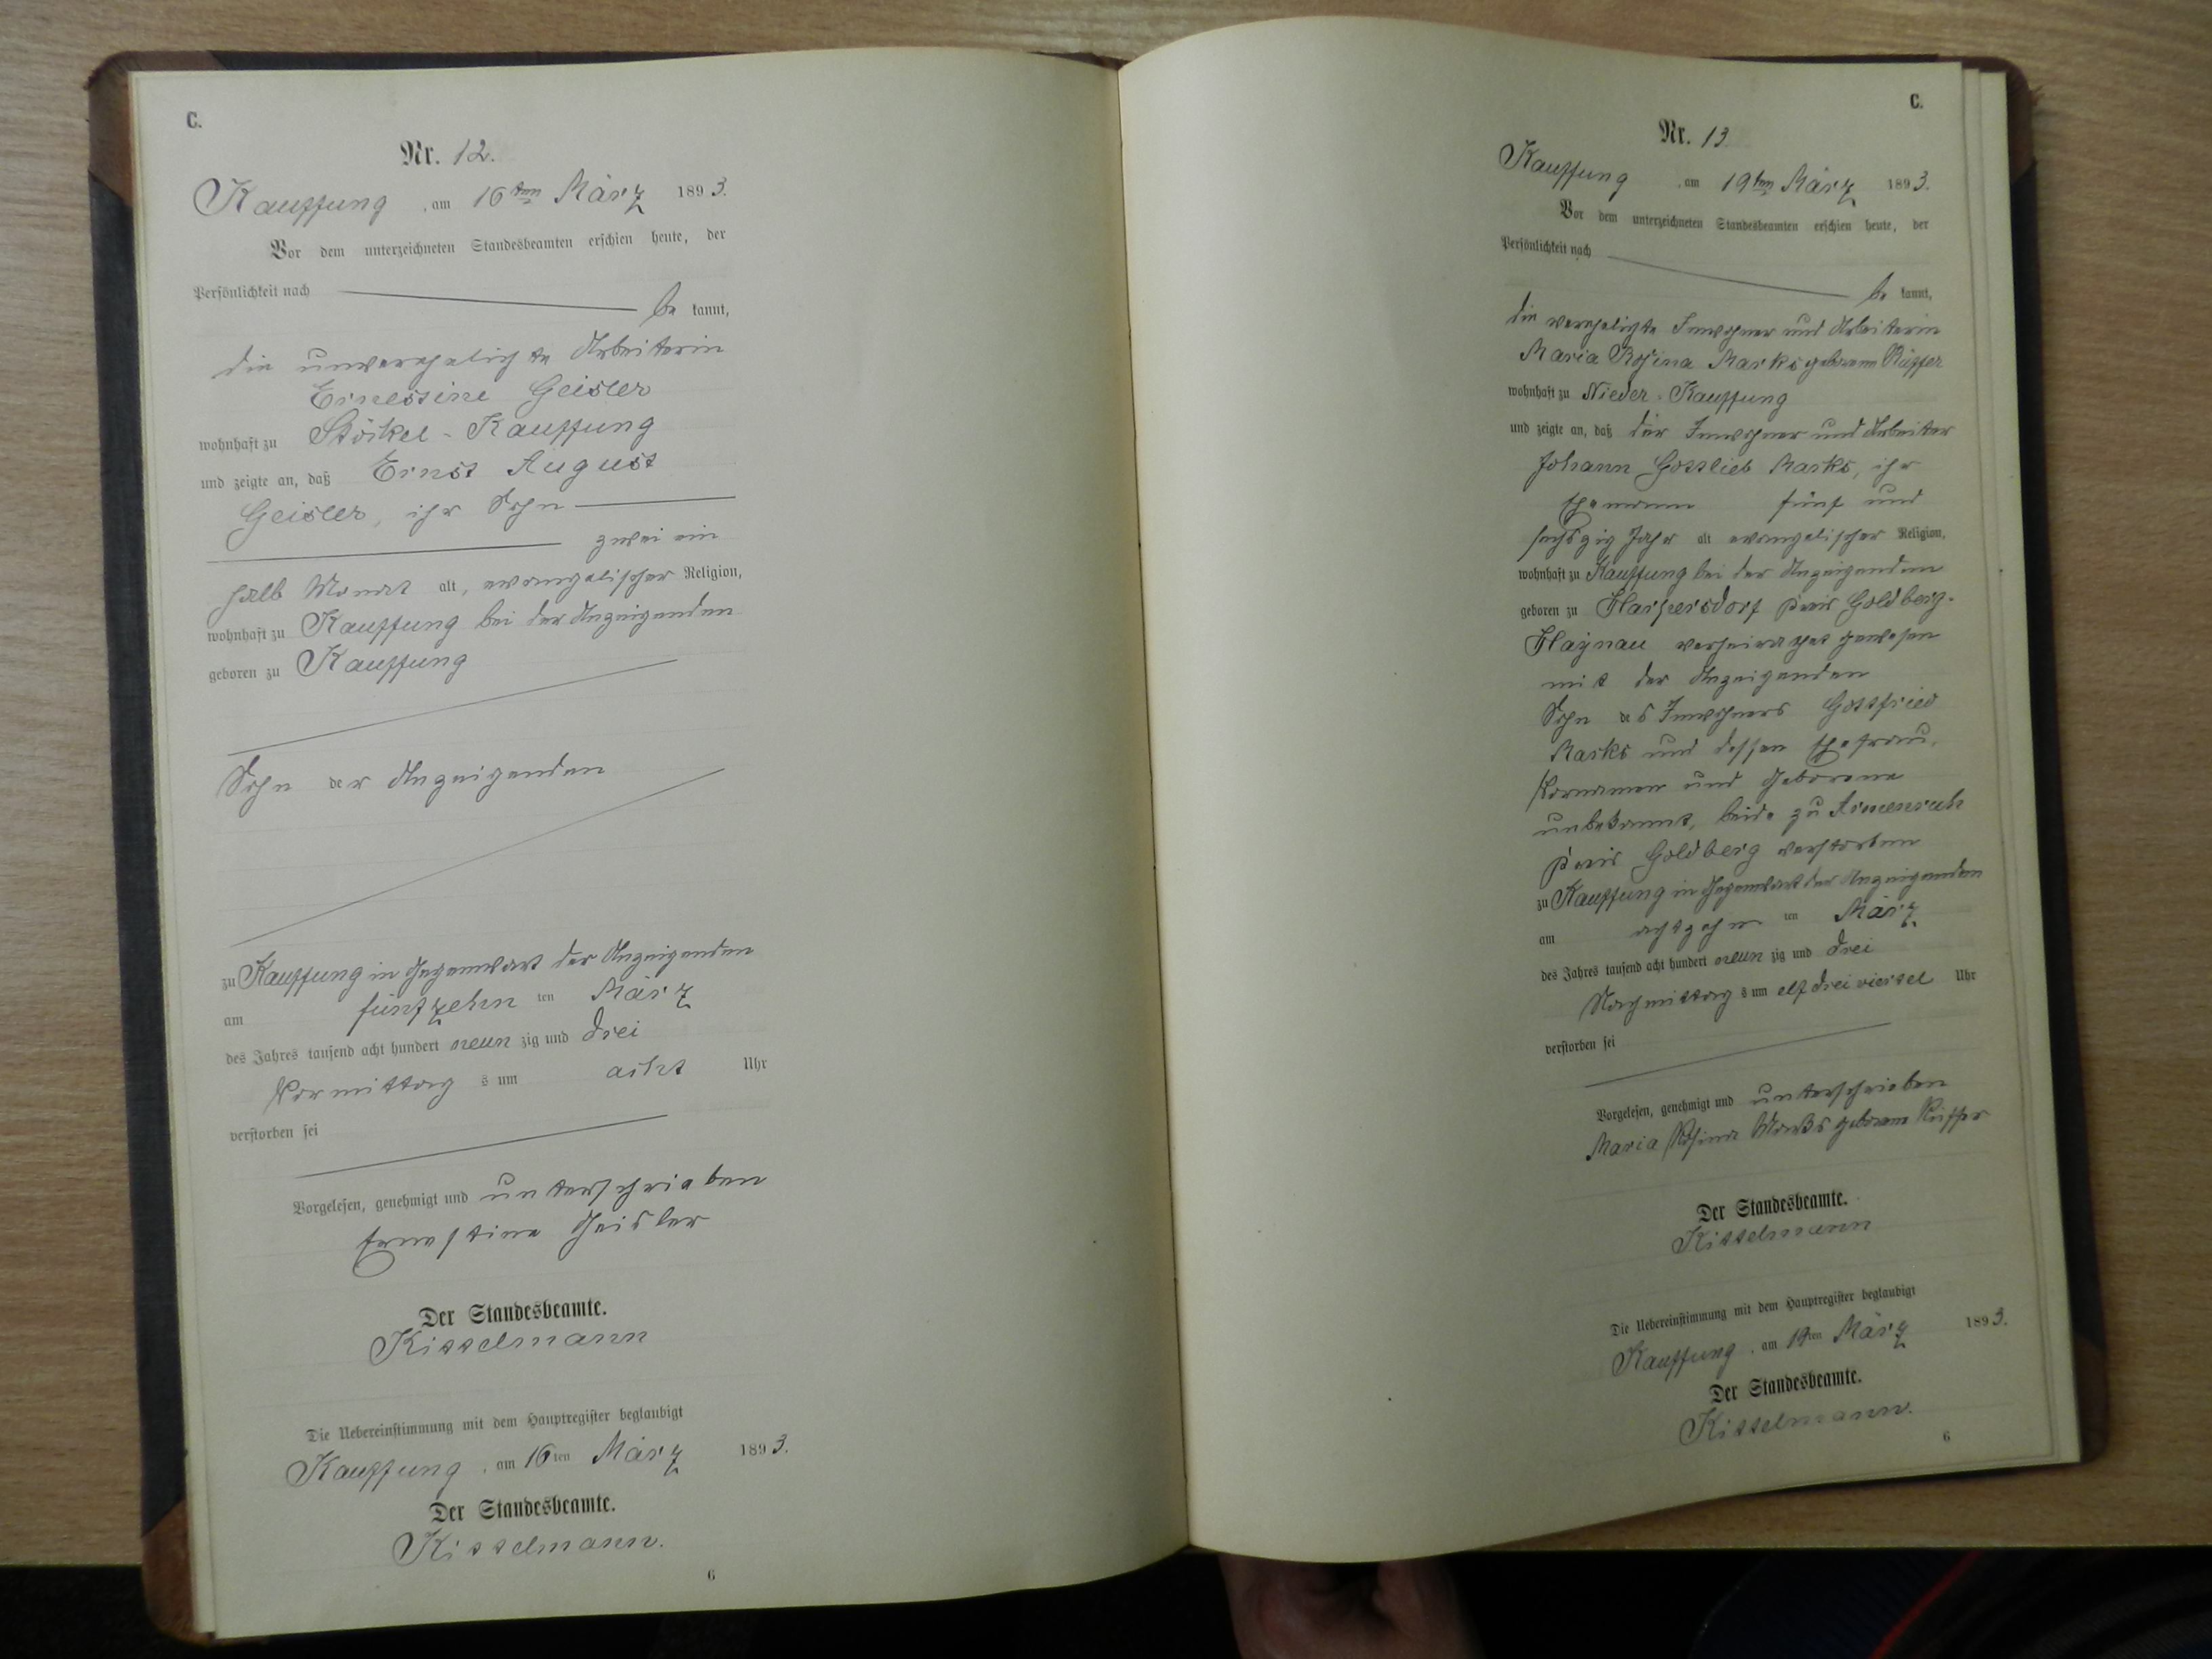 C.
Nr. 12.
Kauffung, am 16ten März 1893.
Vor dem unterzeichneten Standesbeamten erschien heute, der
Persönlichkeit nach
be kannt,
die unverehelichte Arbeiterin
Ernestine Geisler
wohnhaft zu Stöckel-Kauffung
und zeigte an, daß Ernst August
Geisler, ihr Sohn
zwei ein
halb Monat alt, evangelischer Religion,
wohnhaft zu Kauffung bei der Anzeigenden
geboren zu Kauffung
Sohn der Anzeigenden
zu Kauffung in Gegenwart der Anzeigenden
am fünfzehn ten März
des Jahres tausend acht hundert neun zig und drei
Vormittag s um acht Uhr
verstorben sei
Vorgelesen, genehmigt und unterschrieben
Ernestine Geisler
Der Standesbeamte.
Kisselmann
Die Uebereinstimmung mit dem Hauptregister beglaubigt
Kauffung, am 16ten März 1893.
Der Standesbeamte.
Kisselmann.
6
C.
Nr. 13
Kauffung, am 19ten März 1893.
Vor dem unterzeichneten Standesbeamten erschien heute, der
Persönlichkeit nach
be kannt,
die verehelichte Inwohner und Arbeiterin
Maria Rosina Marks geborene Rüffer
wohnhaft zu Nieder-Kauffung
und zeigte an, daß der Inwohner und Arbeiter
Johann Gottlieb Marks, ihr
Ehemann fünf und
sechszig Jahr alt evangelischer Religion,
wohnhaft zu Kauffung bei der Anzeigenden
geboren zu Harpersdorf Kreis Goldberg-
Haynau verheirathet gewesen
mit der Anzeigenden
Sohn des Inwohners Gottfried
Marks und dessen Ehefrau,
Vornamen und Geborene
unbekannt, beide zu Armenruh
Kreis Goldberg verstorben
zu Kauffung in Gegenwart der Anzeigenden
am achtzehn ten März
des Jahres tausend acht hundert neun zig und drei
Nachmittag s um elf dreiviertel Uhr
verstorben sei
Vorgelesen, genehmigt und unterschrieben
Maria Rosina Marks geborene Rüffer
Der Standesbeamte.
Kisselmann
Die Uebereinstimmung mit dem Hauptregister beglaubigt
Kauffung, am 19ten März 1893.
Der Standesbeamte.
Kisselmann.
6